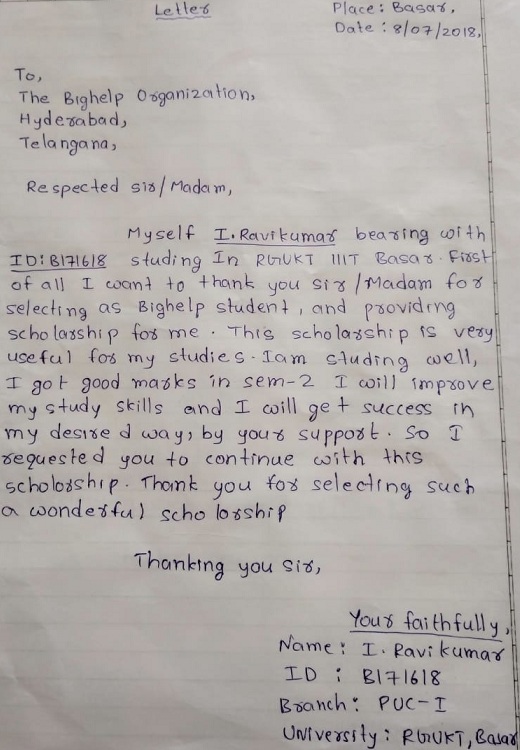 Letter
Place: Basar,
Date: 8/07/2018,
To,
The Bighelp Organization,
Hyderabad,
Telangana,
Respected sir/Madam,
Myself I.Ravikumar bearing with
ID:B171618 studing In RGUKT IIIT Basar. First
of all I want to thank you sir/Madam for
selecting as Bighelp student, and providing
scholarship for me. This scholarship is very
useful for my studies. Iam studing well,
I got good marks in sem-2 I will improve
my study skills and I will get success in
my desired way, by your support. So I
requested you to continue with this
scholorship. Thank you for selecting such
a wonderful scholorship
Thanking you sir,
Your faithfully,
Name: I. Ravikumar
ID : B171618
Branch: PUC-I
University: RGUKT, Basar